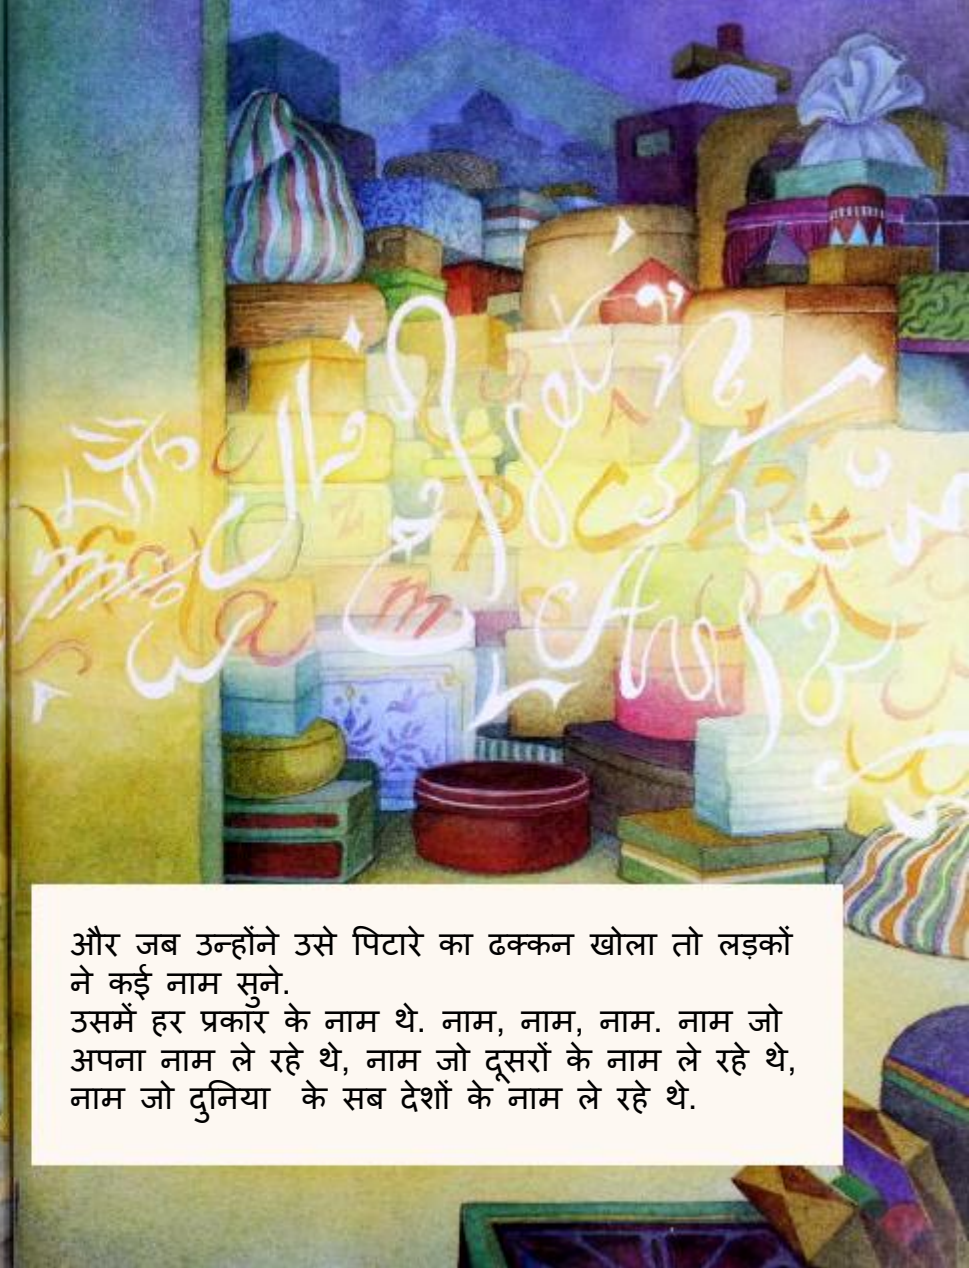 और जब उन्होंने उसे पिटारे का ढक्कन खोला तो लड़कों
ने कई नाम सुने.
उसमें हर प्रकार के नाम थे. नाम, नाम, नाम. नाम जो
अपना नाम ले रहे थे, नाम जो दूसरों के नाम ले रहे थे,
नाम जो दुनिया के सब देशों के नाम ले रहे थे.